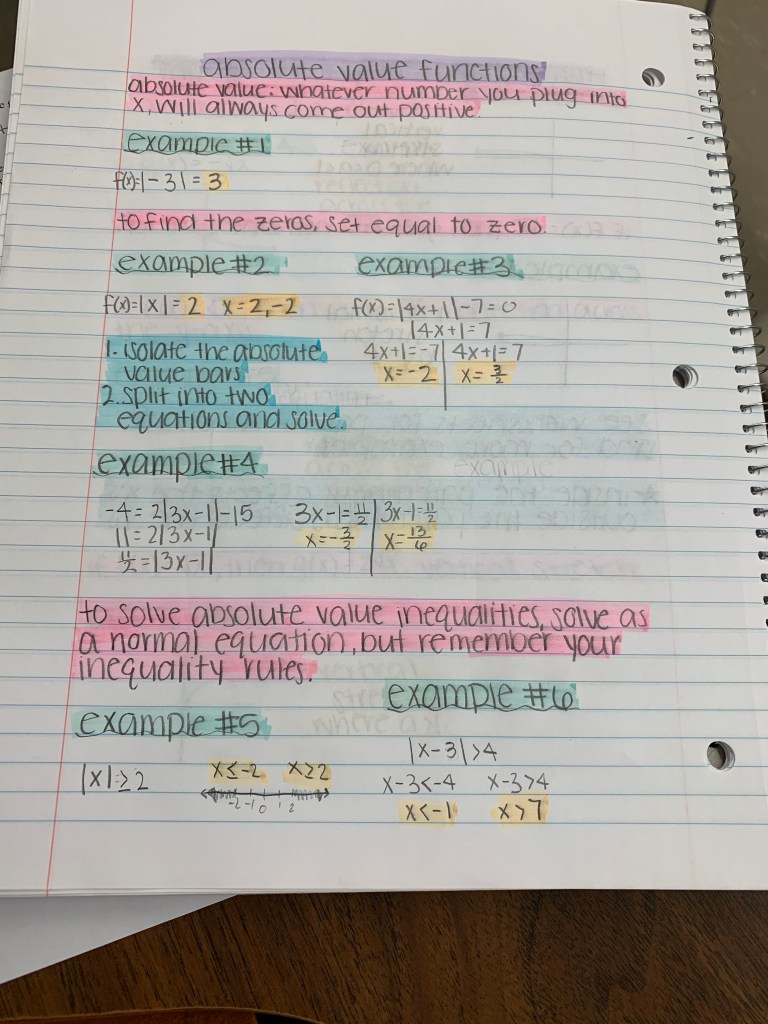 absolute value functions
absolute value: whatever number you plug into
x, will always come out positive.
example #1
f(x)=|-3| = 3
to find the zeros, set equal to zero.
example #2
f(x)=|x|=2 x=2,-2
1. isolate the absolute
value bars
2. split into two
equations and solve.
example #3
f(x)=|4x+1|-7=0
|4x+1=7
4x+1=-7 | 4x+1=7
x=-2 | x=3/2
example #4
-4=2|3x-1|-15
11=2|3x-1|
11/2=|3x-1|
3x-1=11/2 | 3x-1=11/2
x=-3/2 | x=13/6
to solve absolute value inequalities, solve as
a normal equation, but remember your
inequality rules.
example #5
|x|≥2 x≤-2 x≥2
-2 -1 0 1 2
example #6
|x-3|>4
x-3<-4 x-3>4
x<-1 x>7